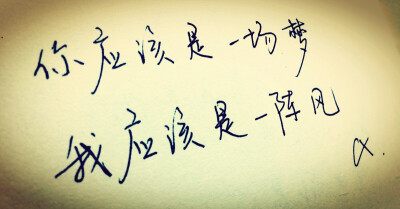 你应该是一场梦
我应该是一阵风
α.